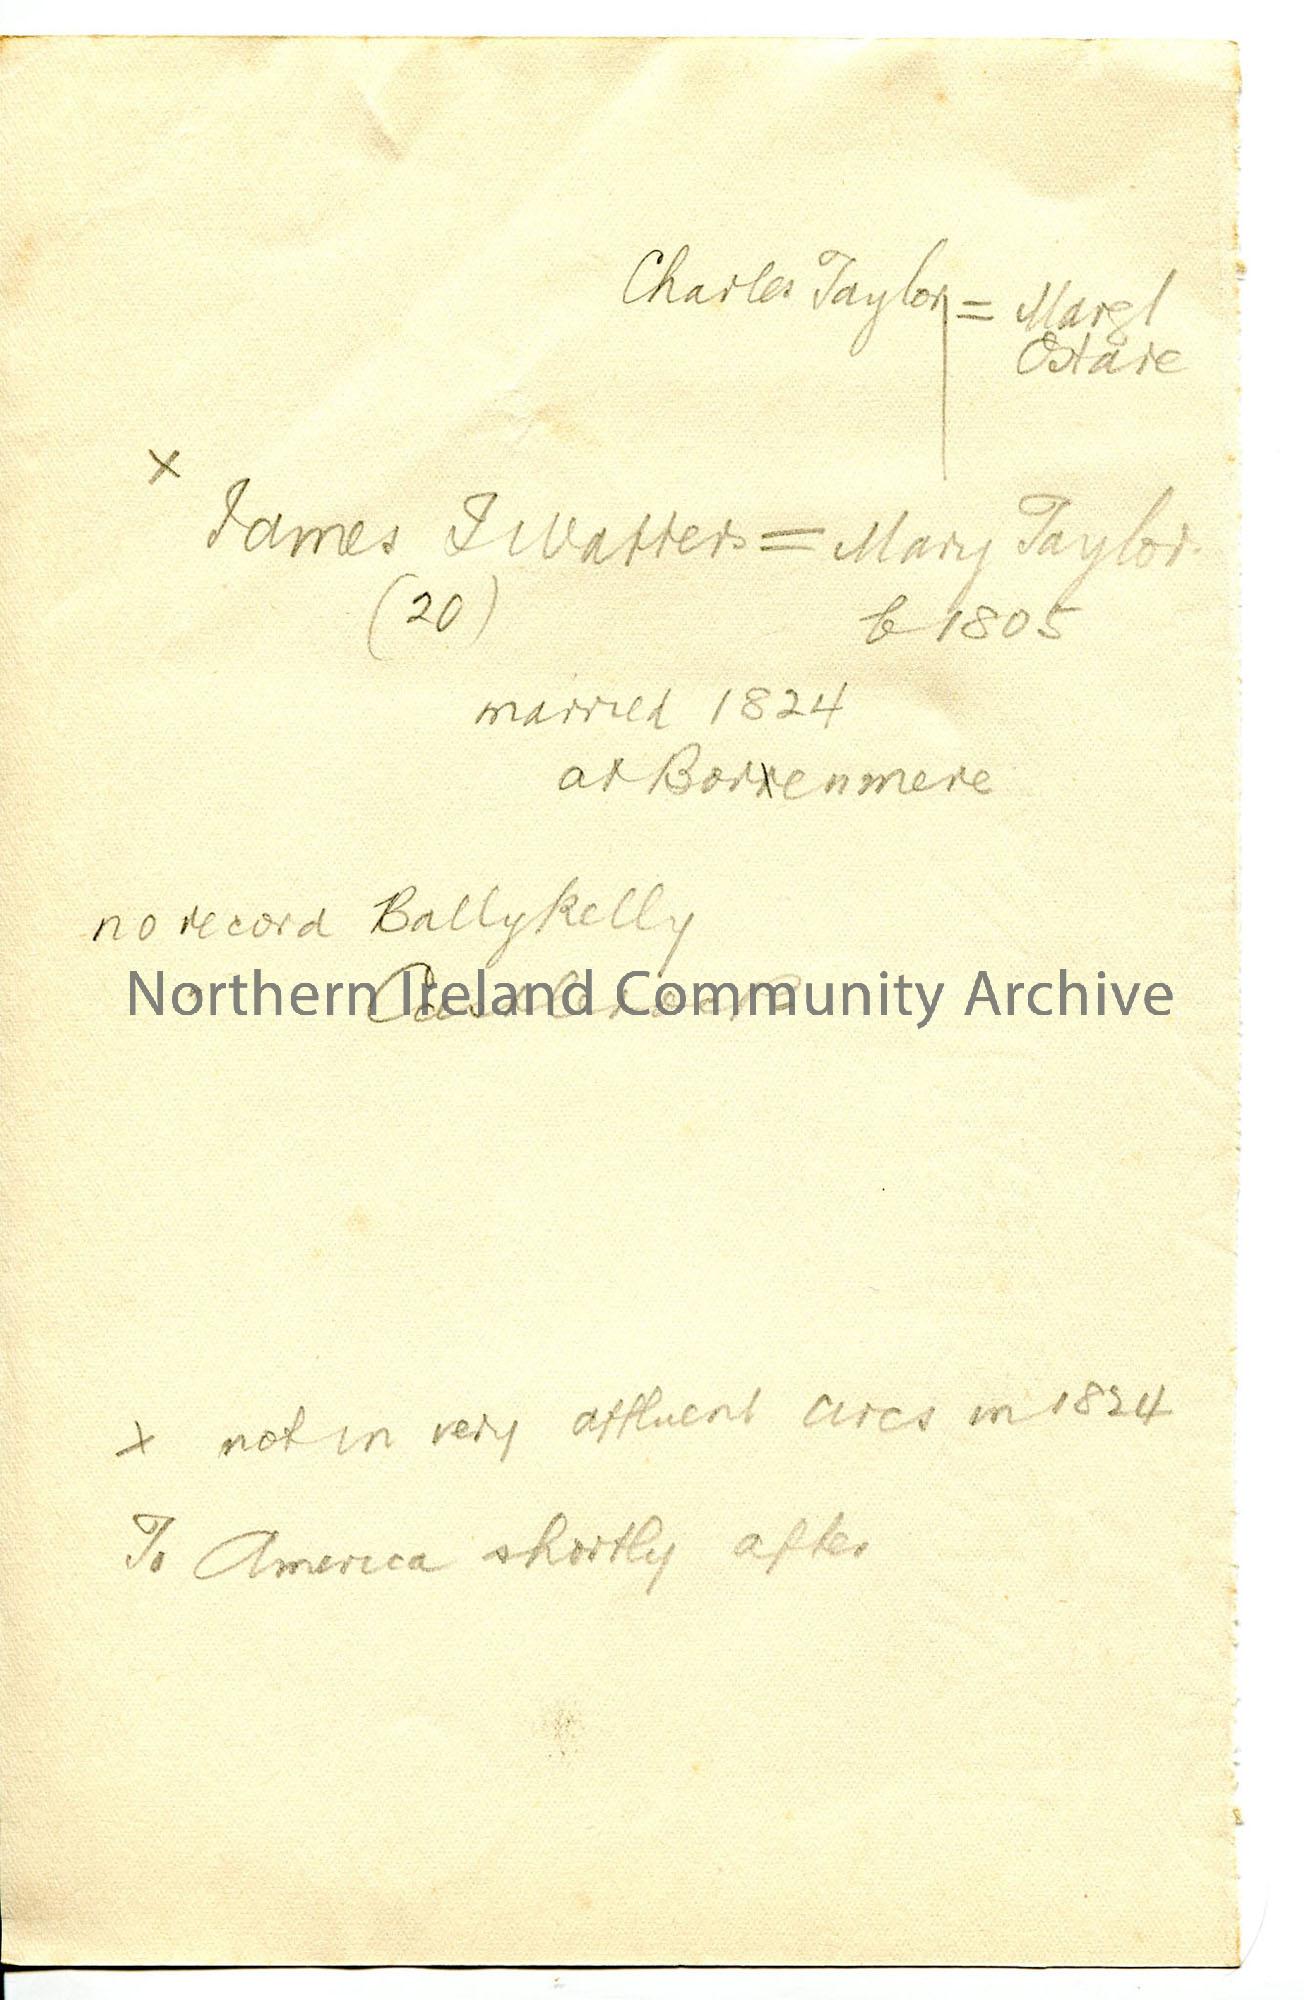 Charles Taylor = Margt
James J Watters = Mary Taylor
(20) b 1805
married 1824
at
no record Ballykelly
Castlerock
Northern Ireland Community Archive
x not in very affluent circs in 1824
To America shortly after